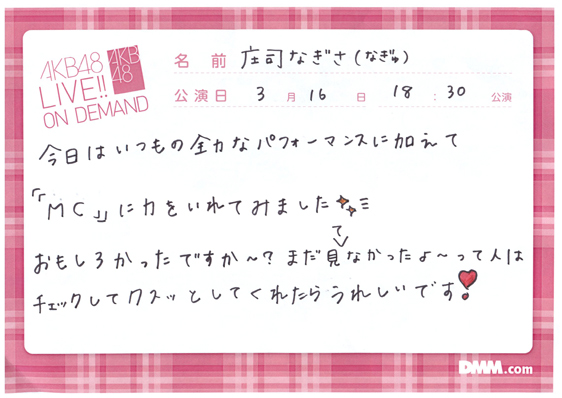 AKB48
LIVE!!
ON DEMAND
AKB
48
名前 庄司なぎさ(なぎゅ)
公演日 3月16日 18:30 公演
今日はいつもの全力なパフォーマンスに加えて
『MC』に力をいれてみました
おもしろかったですか〜?まだ見てなかったよ〜って人は
チェックしてクスッとしてくれたらうれしいです!
DMM.com